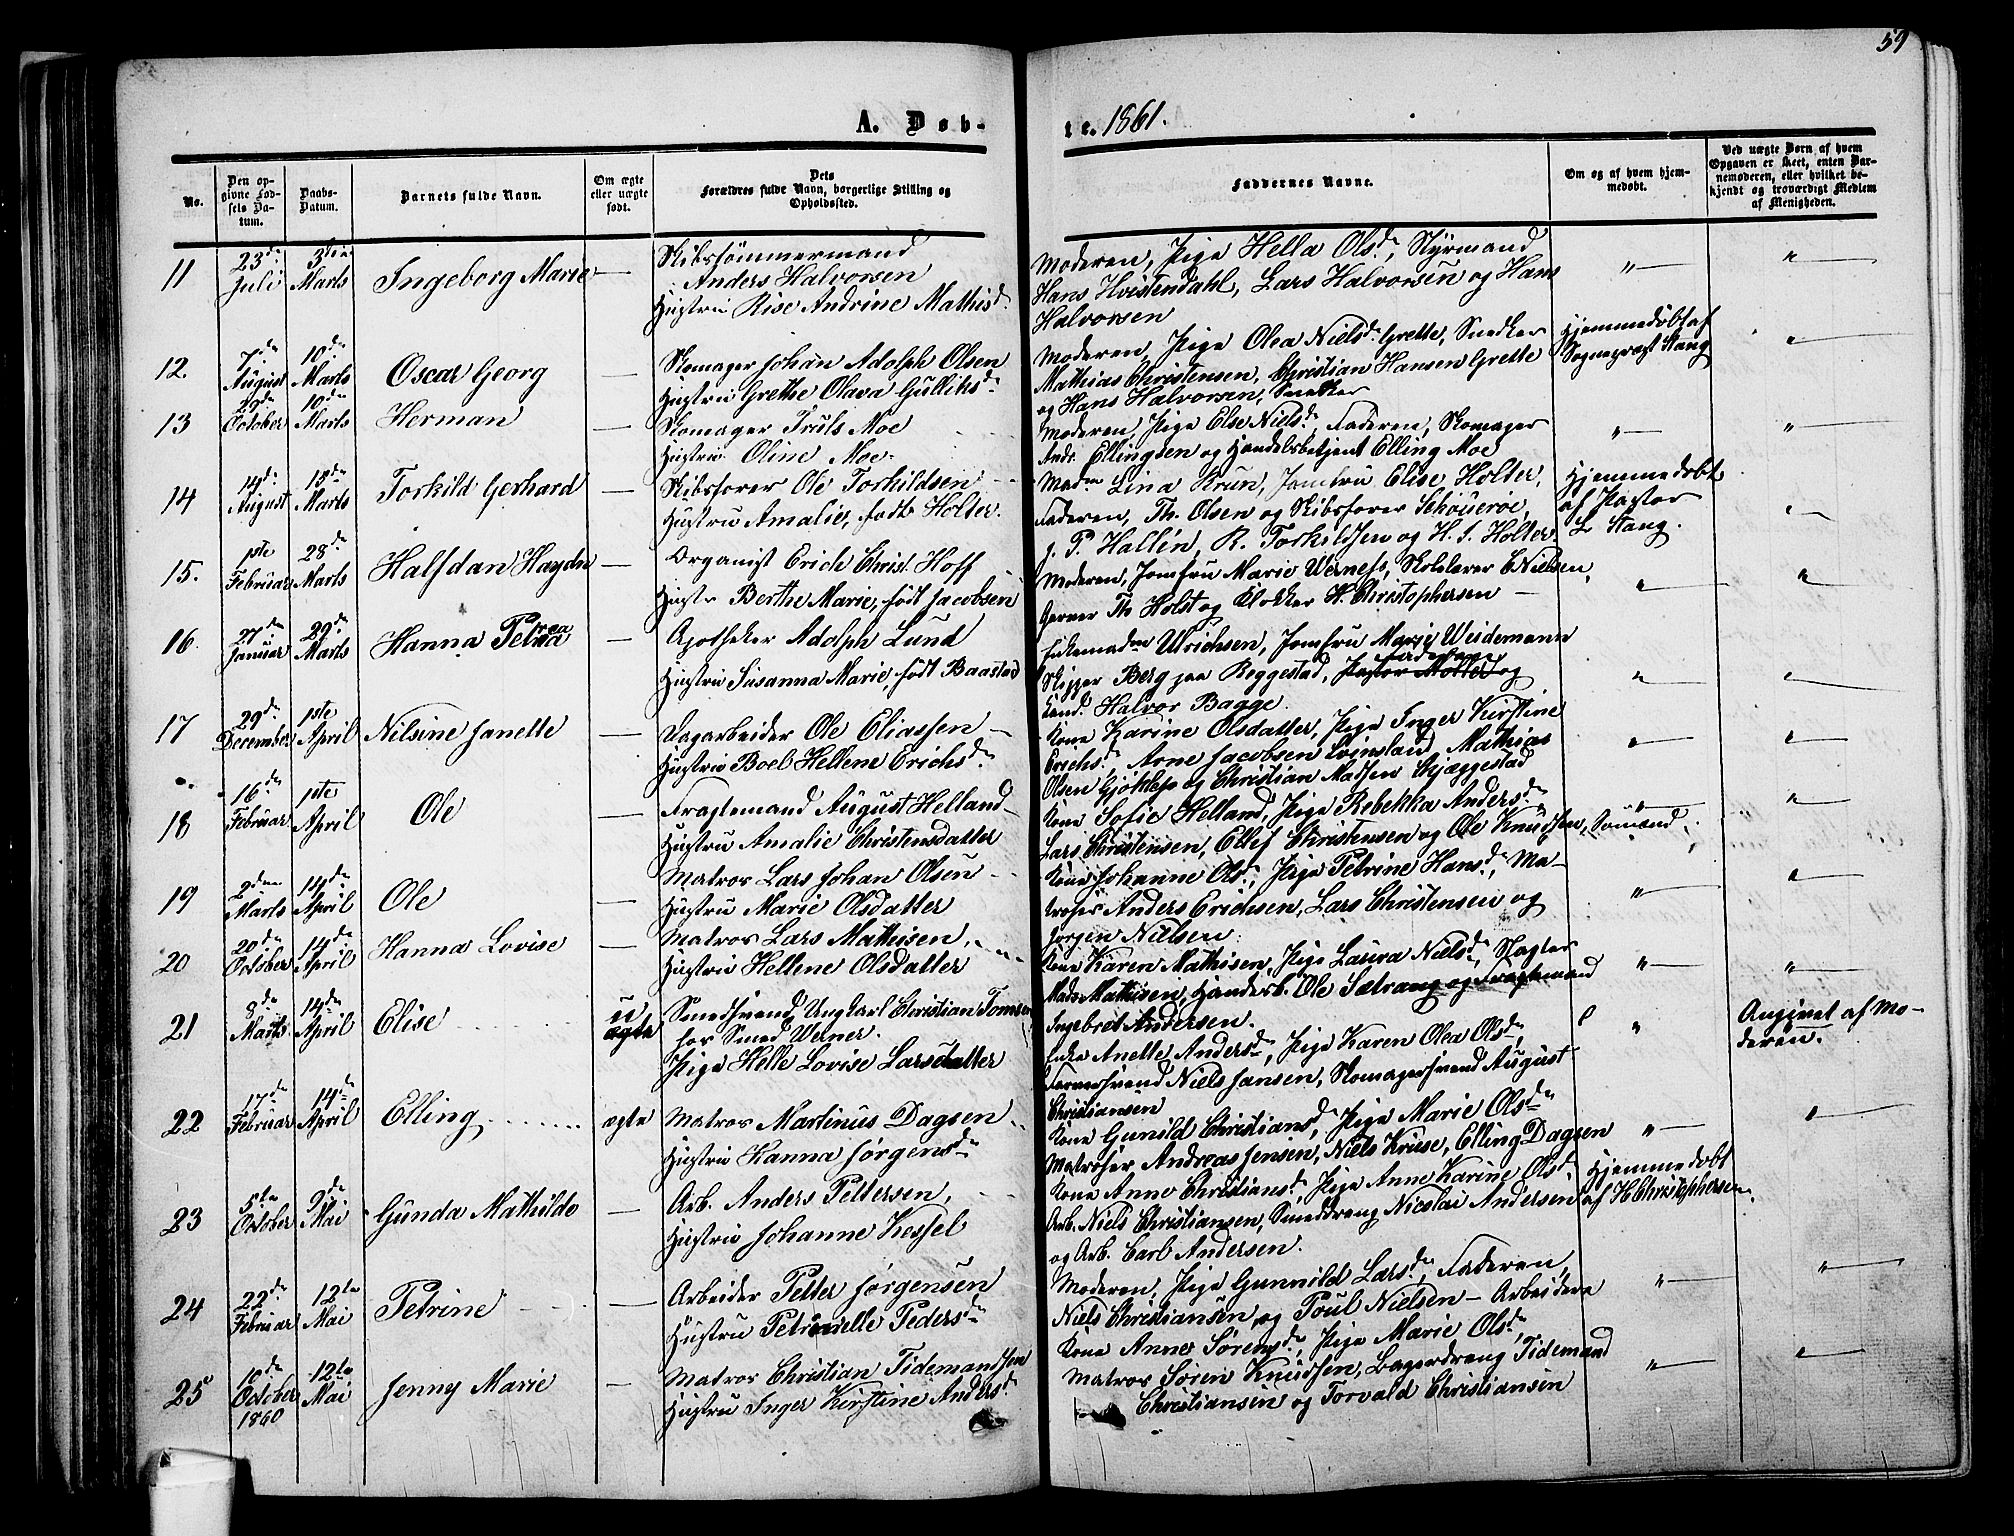 59
A. Døb-
te. 1861.
No.
Den opgivne Fødsels Datum.
Daabs-Datum.
Barnets fulde Navn.
Om ægte eller uægte født.
Dets Forældres fulde Navn, borgerlige Stilling og Opholdssted.
Faddernes Navne.
Om og af hvem hjemmedøbt.
Ved uægte Børn af hvem Opgaven er skeet, enten Barnemoderen, eller hvilket bekjendt og troværdigt Medlem af Menigheden.
11 23de Juli 3die Marts Ingeborg Marie —
Skibstømmermand
Anders Halvorsen
Hustru Rise Andrine Mathisd.
Moderen, Pige Hella Olsd., Styrmand
Hans Hvistendahl, Lars Halvorsen og Hans
Halvorsen
" — " —
12. 7de August 10de Marts Oscar Georg —
Skomager Johan Adolph Olsen
Hustru Grethe Olava Gulliksd.
Moderen, Pige Olea Nielsd. Grette, Snedker
Mathias Christensen, Christian Hansen Grette
og Hans Halvorsen, Snedker
Hjemmedøbt af
Sognepræst Stang
" —
13 29de October 10de Marts Herman —
Skomager Truls Moe
Hustru Oline Moe
Moderen, Pige Else Nielsd., Faderen, Skomager
Andr. Ellingsen og Handelsbetjent Elling Moe
" — " —
14 14de August 13de Marts Torkild Gerhard —
Skibsfører Ole Torkildsen
Hustru Amalie, født Holter.
Madm Lina Krun, Jomfru Elise Holter,
Faderen, Th. Olsen og Skibsfører
J. P. Hallén, R. Torkildsen og H. J. Holter
Hjemmedøbt
af Pastor
L Stang.
" —
15. 1ste Februar 28de Marts Halfdan Haydn —
Organist Erick Christ. Hoff
Hustr Berthe Marie, født Jacobsen
Moderen, Jomfru Marie Werness, Skolelærer C Nielsen,
Garver Th Holst og Klokker H. Christophersen —
" — " —
16. 27de Januar 29de Marts Hanna Petrea —
Apotheker Adolph Lund
Hustru Susanna Marie, født Baastad
Enkemadm Ulrichsen, Jomfru Marie Weidemann
Skipper Berg paa Reggestad, Pastor Moltes og
Cand. Halvor Bagge.
" — " —
17 29de December 1ste April Nilsine Janette —
Dagarbeider Ole Eliassen —
Hustru Boel Hellene Erichsd.
Kone Karine Olsdatter, Pige Inger Kirstine
Erichsd. Arne Jacobsen Lvinsland, Mathias
Olsen Gjøklep og Christian Madsen Skjæggestad
" — " —
18 16de Februar 1ste April Ole —
Fragtemand August Helland —
Hustru Amalie Christensdatter
Kone Sofie Helland, Pige Rebekka Andersd.
Lars Christensen, Ellef Christensen og Ole Knudsen, Sømænd
" — " —
19 2den Marts 14de April Ole —
Matros Lars Johan Olsen
Hustru Marie Olsdatter
Kone Johanne Olsd., Pige Petrine Hansd., Ma-
troser Anders Erichsen, Lars Christensen og
Jørgen Nielsen.
" — " —
20 20de October 14de April Hanna Lovise —
Matros Lars Mathisen,
Hustru Hellene Olsdatter
Kone Karen Mathisen, Pige Lasiva Nielsd., Slagter
Mads Mathisen, Handelsb. Ole Sætrang og Fragtemand
Ingebret Andersen.
" — " —
21 8de Marts 14de April Elise
u
ægte
Smedsvend Ungkarl Christian Tomsen
hos Smed Werner.
Pige Helle Lovise Larsdatter
Enke Anette Andersd., Pige Karen Olea Olsd.,
Farversvend Niels Jansen, Skomagersvend August
Christiansen
"
Angivet af Mo-
deren.
22 17de Februar 14de April Elling ægte
Matros Martinus Dagsen
Hustru Hanna Jørgensd.
Kone Gunild Christiansd., Pige Marie Olsd.
Matroser Andreas Jensen, Niels Kruse, Elling Dagsen
" — " —
23 5te October 9de Mai Gunda Mathilde —
Arb. Anders Pettersen,
Hustru Johanne Kessel
Kone Anne Christiansd., Pige Anne Karine Olsd.
Arb. Niels Christiansen, Smeddreng Nicolai Andersen
og Arb. Carl Andersen.
Hjemmedøbt
af H Christophersen.
24 22de Februar 12te Mai Petrine —
Arbeider Petter Jørgensen
Hustru Petronelle Pedersd.
Moderen, Pige Gunnild Larsd., Faderen,
Niels Christiansen, og Poul Nielsen — Arbeidere
" — " —
25 10de October 1860 12te Mai Jenny Marie —
Matros Christian Tidemandsen
Hustru Inger Kirstine Andersd.
Kone Anne Sørensd., Pige Marie Olsd.,
Matros Søren Knudsen, Bagerdreng Tidemand
Christiansen og Torvald Christiansen
" — " —